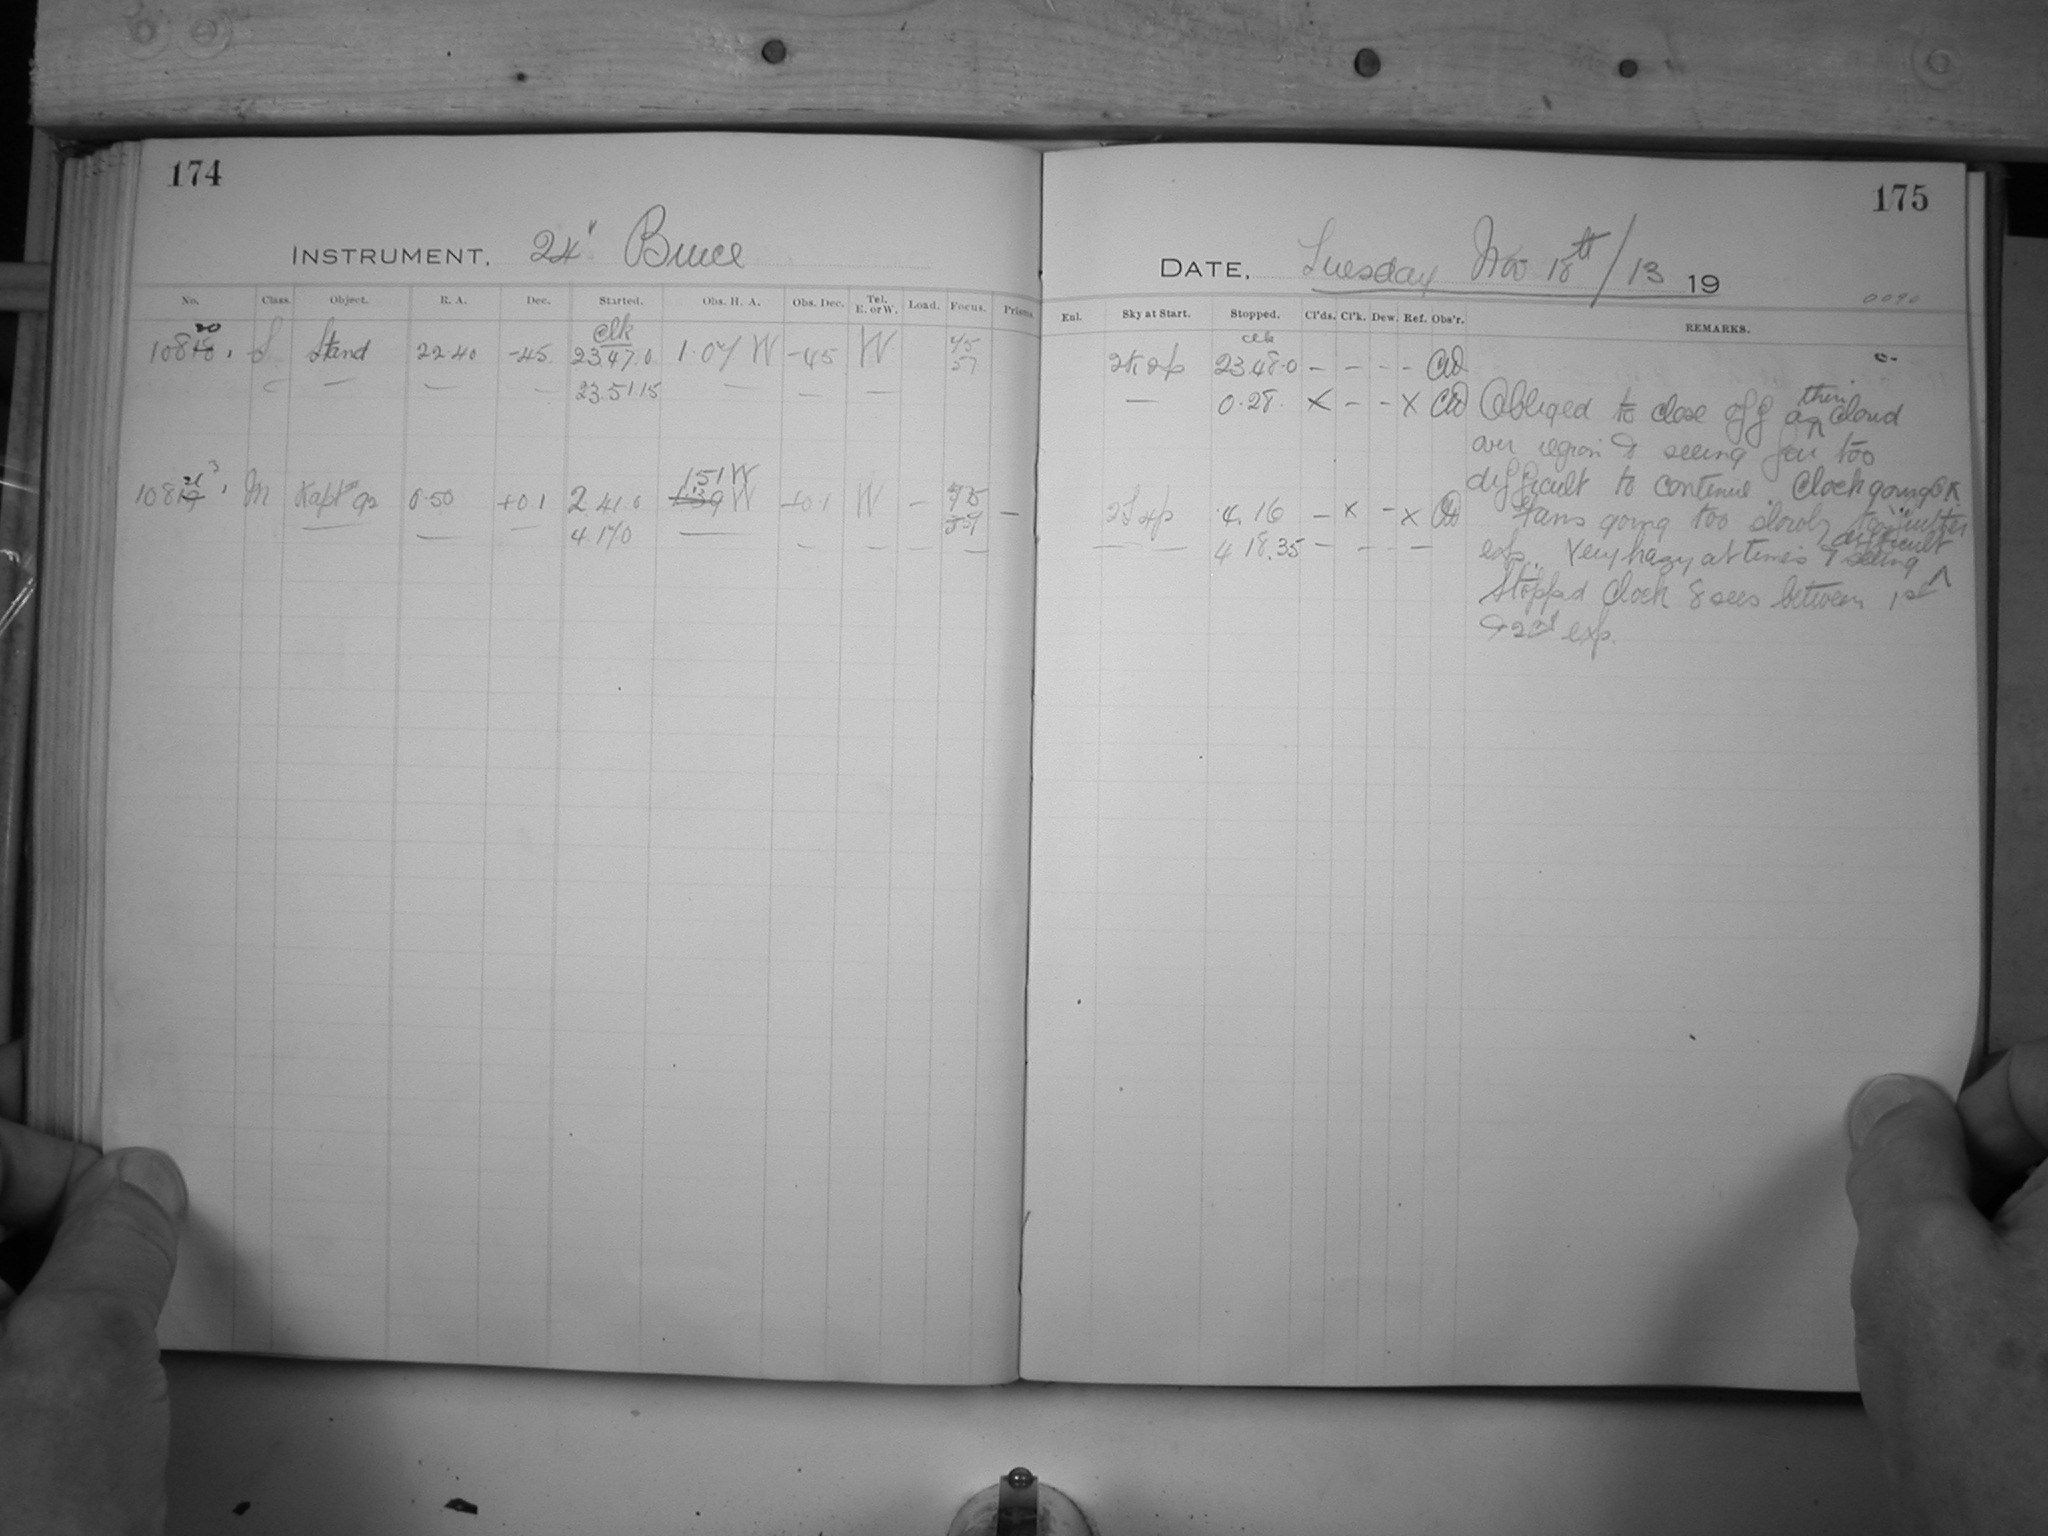 174
INSTRUMENT. 24" Bruce
No. Class. Object. R. A. Dec. Started. Obs. H. A. Obs. Dec. Tel. E. or W. Load. Focus. Prisms.
clk
20
10818. S Stand 22.40 -45 23.47.0 1.07 W -45 W 45 57
— — — 23.51.15 — — —
151 W
21 3
10819. M Kapt 92 0.50 +0.1 2 41.0 139 W +0.1 W —
— — — 4.17.0 — — — — —
175
DATE. Tuesday Nov 18th/13 19
0090
Enl. Sky at Start. Stopped. Cl'ds. Cl'k. Dew. Ref. Obs'r. REMARKS.
clk
23.48.0 — — — — CW
— 0.28. X — — X CW Obliged to close off a thin cloud
over region & seeing far too
difficult to continue. Clock going OK
4.16 — X — X CW Fans going too slowly
— — 4 18.35 — — — exp. Very hazy at times & seeing difficult
Stopped Clock 8 secs between 1st
& 2nd exp.